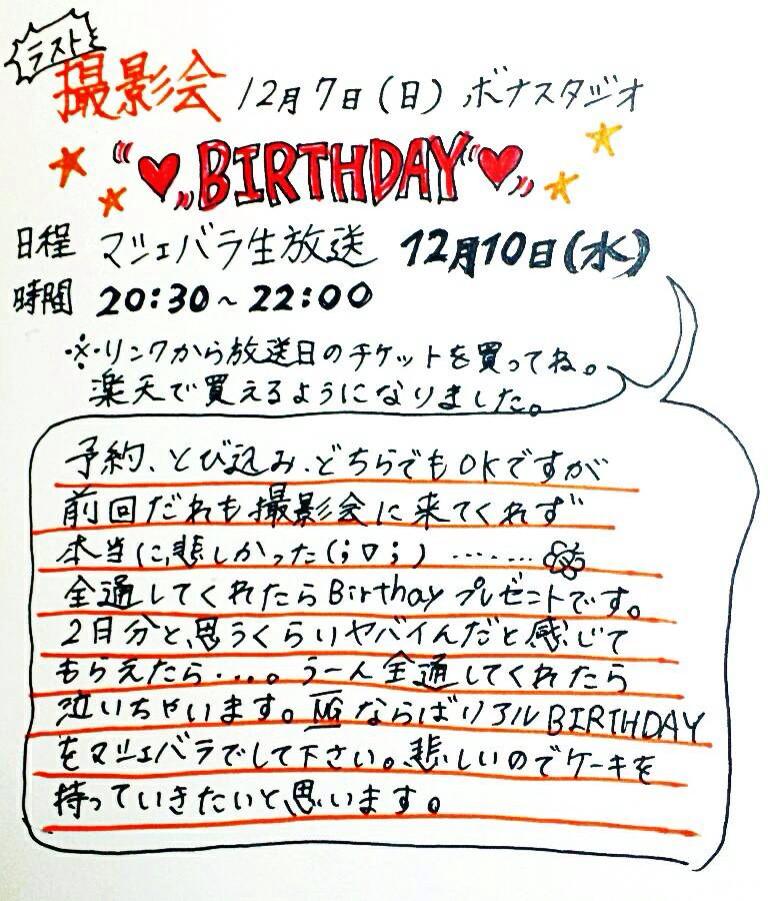 ラストと
撮影会 12月7日(日) ボナスタジオ
"♥„BIRTHDAY"♥„
日程 マシェバラ生放送 12月10日(水)
時間 20:30~22:00
※リンクから放送日のチケットを買ってね。
楽天で買えるようになりました。
予約、とび込み、どちらでもOKですが
前回だれも撮影会に来てくれず
本当に悲しかった(;ロ;)………
全通してくれたらBirthayプレゼントです。
2日分と思うくらいヤバイんだと感じて
もらえたら...。うーん全通してくれたら
泣いちゃいます。NGならばリアルBIRTHDAY
をマシェバラでして下さい。悲しいのでケーキを
持っていきたいと思います。